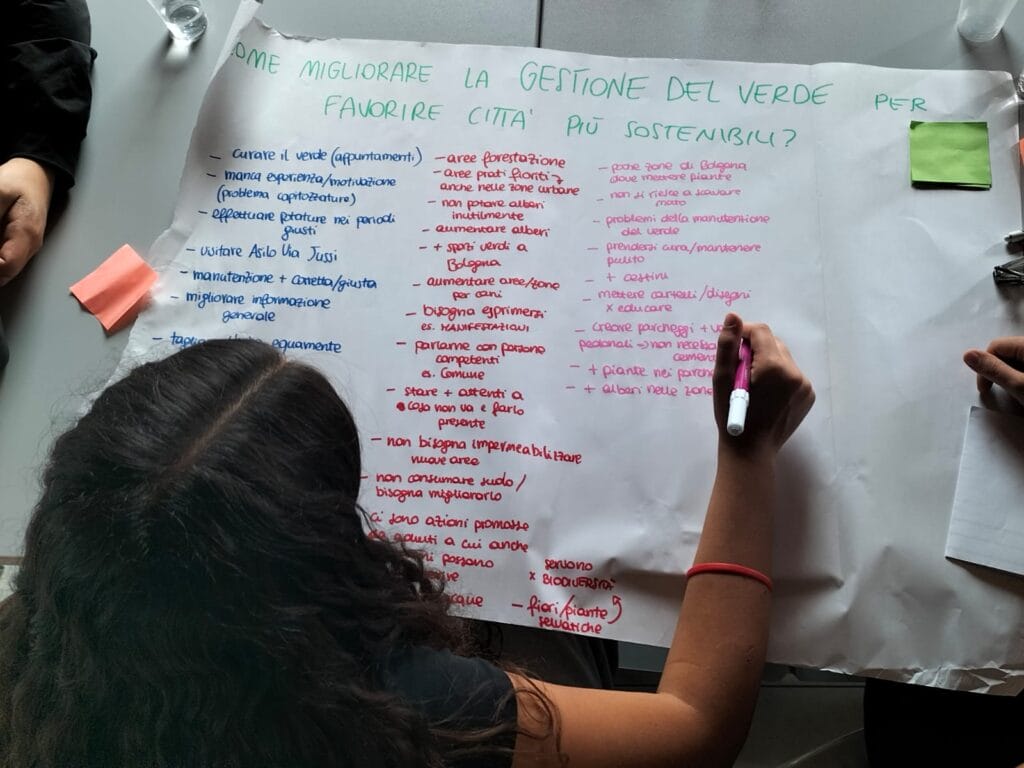 OME MIGLIORARE LA GESTIONE DEL VERDE PER
FAVORIRE CITTA' PIÙ SOSTENIBILI?
- curare il verde (appuntamenti)
- manca esperienza/motivazione
(problema capitozzature)
- effettuare potature nei periodi
giusti
- visitare Asilo Via Jussi
- manutenzione + corretta/giusta
- migliorare informazione
generale
- equamente
- aree forestazione
- aree prati fioriti
anche nelle zone urbane
- non potare alberi
inutilmente
- aumentare alberi
- + spazi verdi a
Bologna
- aumentare aree/zone
per cani
- bisogna esprimersi
es. MANIFESTAZIONI
- parlarne con persone
competenti
es. Comune
- stare + attenti a
cosa non va e farlo
presente
- non bisogna impermeabilizzare
nuove aree
- non consumare suolo/
bisogna migliorarlo
ci sono azioni promosse
adulti a cui anche
possono
servono
x BIODIVERSITÀ
- fiori/piante
selvatiche
- poche zone di Bologna
dove mettere piante
- non si riesce a scavare
molto
- problemi della manutenzione
del verde
- prendersi cura/mantenere
pulito
- + cestini
- mettere cartelli/disegni
x educare
- creare parcheggi +
pedonali → non
- + piante nei
- + alberi nelle